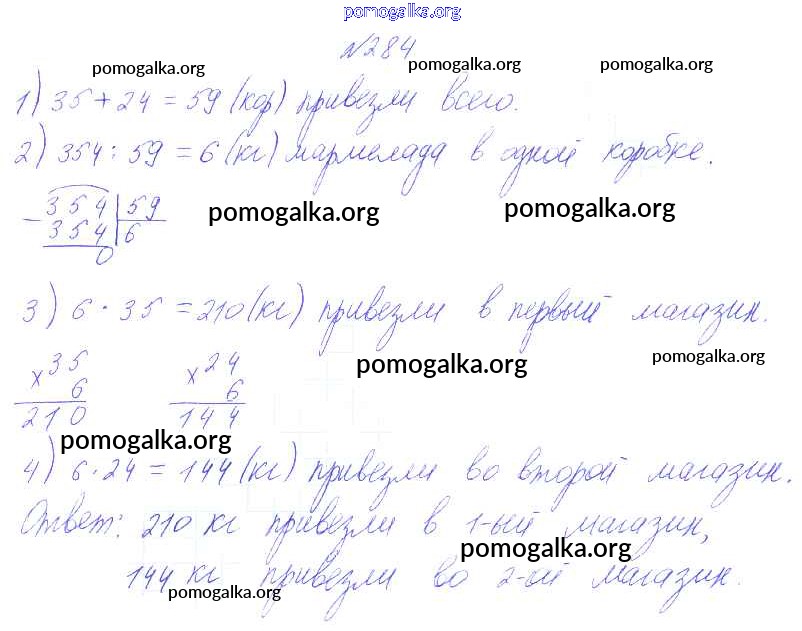 pomogalka.org
№284
pomogalka.org pomogalka.org pomogalka.org
1) 35 + 24 = 59 (кор) привезли всего.
2) 354 : 59 = 6 (кг) мармелада в одной коробке.
- 354 | 59
354 | 6
0
pomogalka.org pomogalka.org
3) 6 · 35 = 210 (кг) привезли в первый магазин.
pomogalka.org pomogalka.org
x 35 x 24
6 6
210 144
pomogalka.org
4) 6 · 24 = 144 (кг) привезли во второй магазин.
Ответ: 210 кг привезли в 1-ый магазин,
pomogalka.org
144 кг привезли во 2-ой магазин.
pomogalka.org